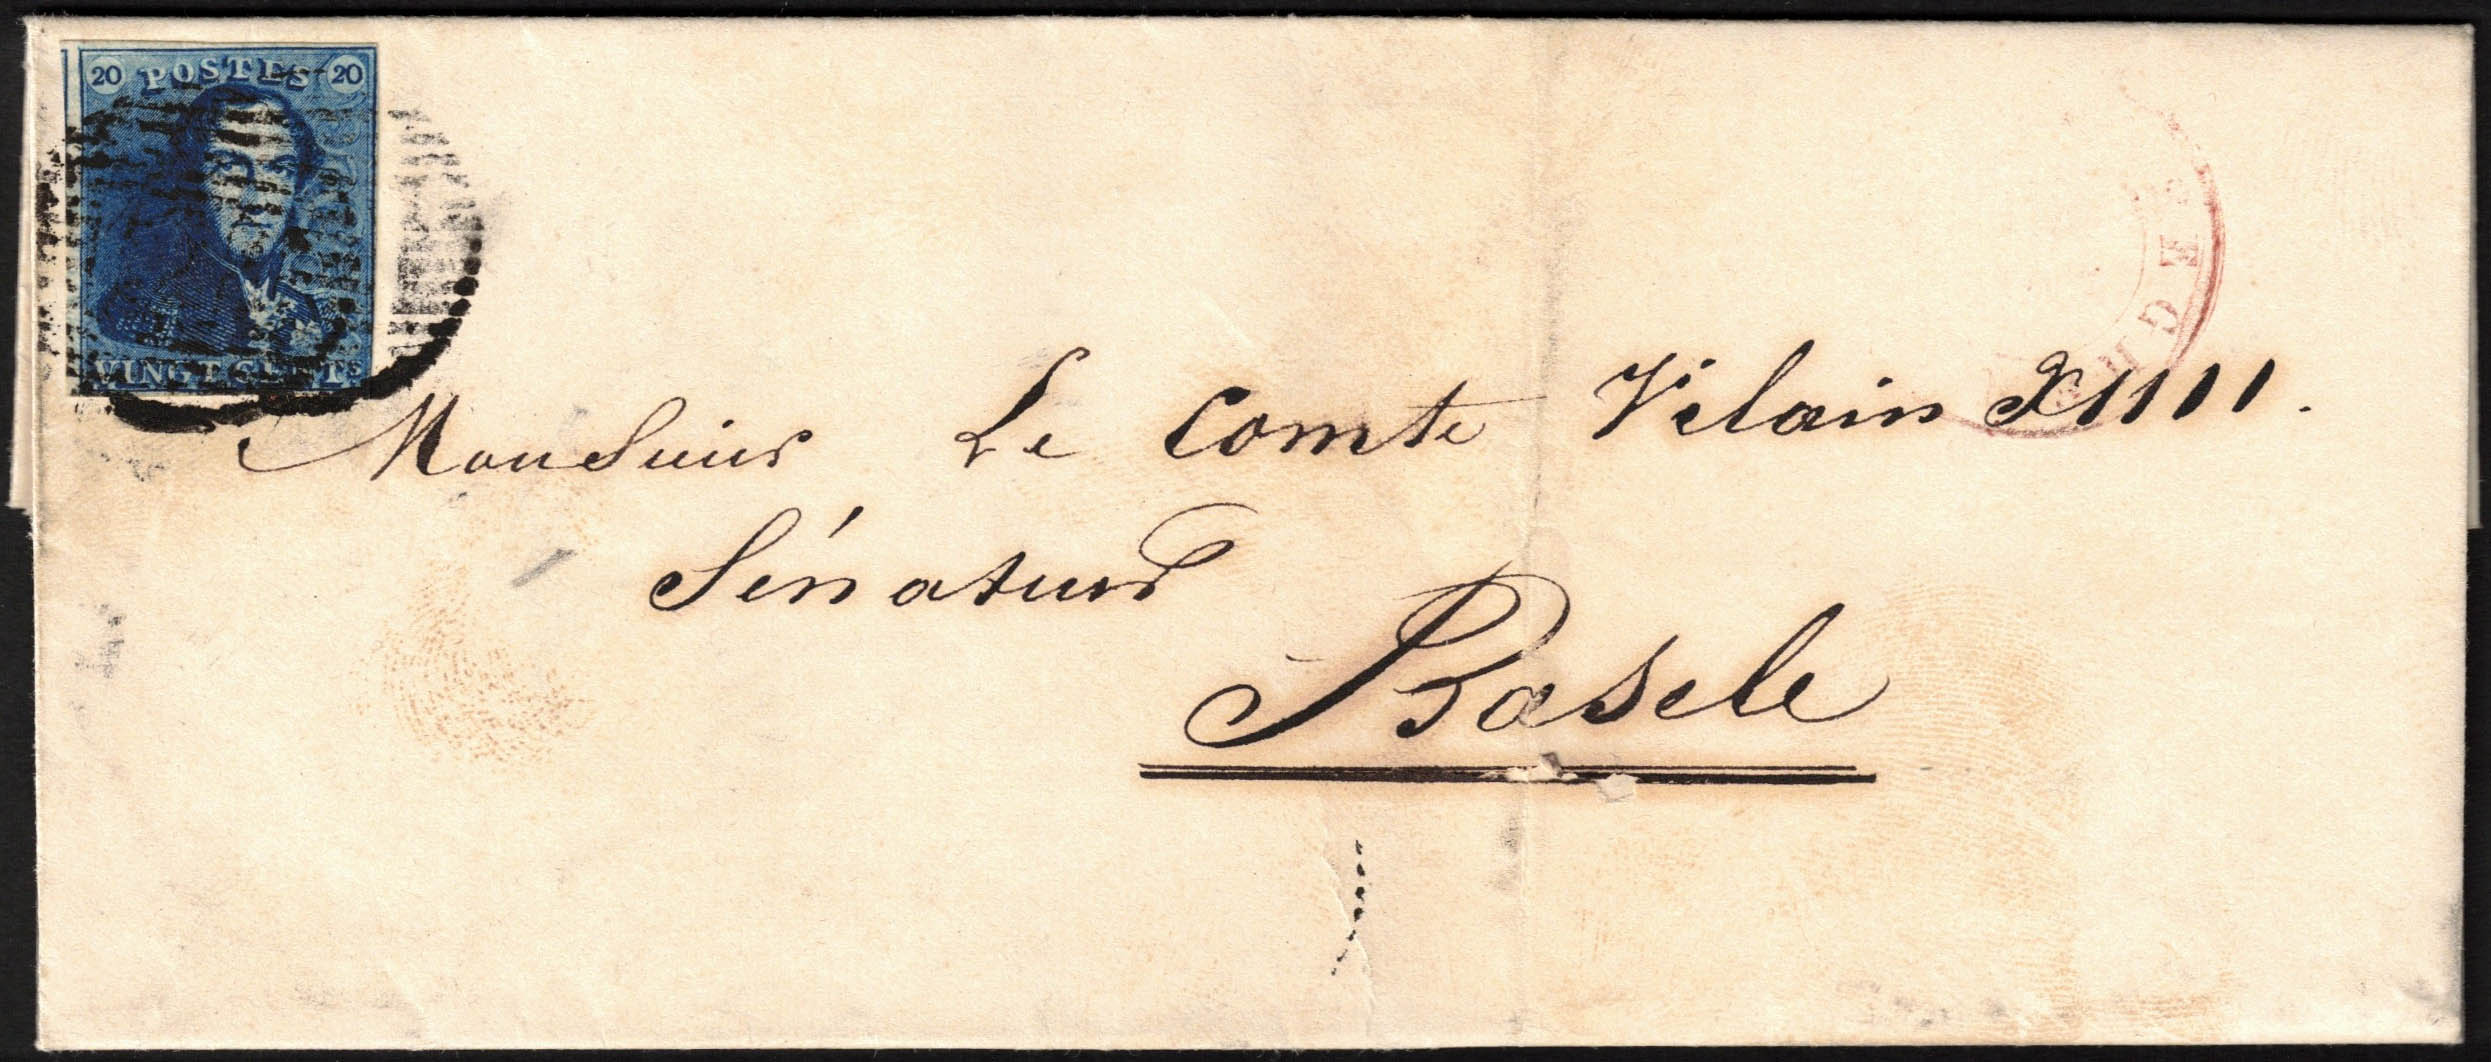 20 POSTES 20
VINGT CENTS
Monsieur Le Comte Vilain XIIII.
Sénateur
Basele